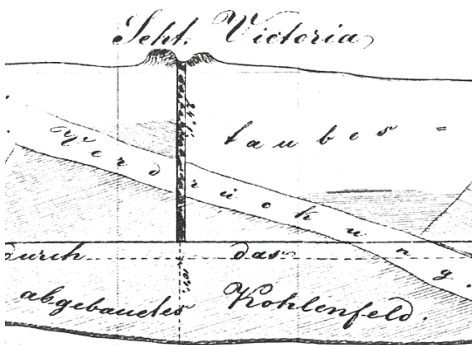 Scht. Victoria
taubes =
Verdrückung.
durch das
abgebautes Kohlenfeld.